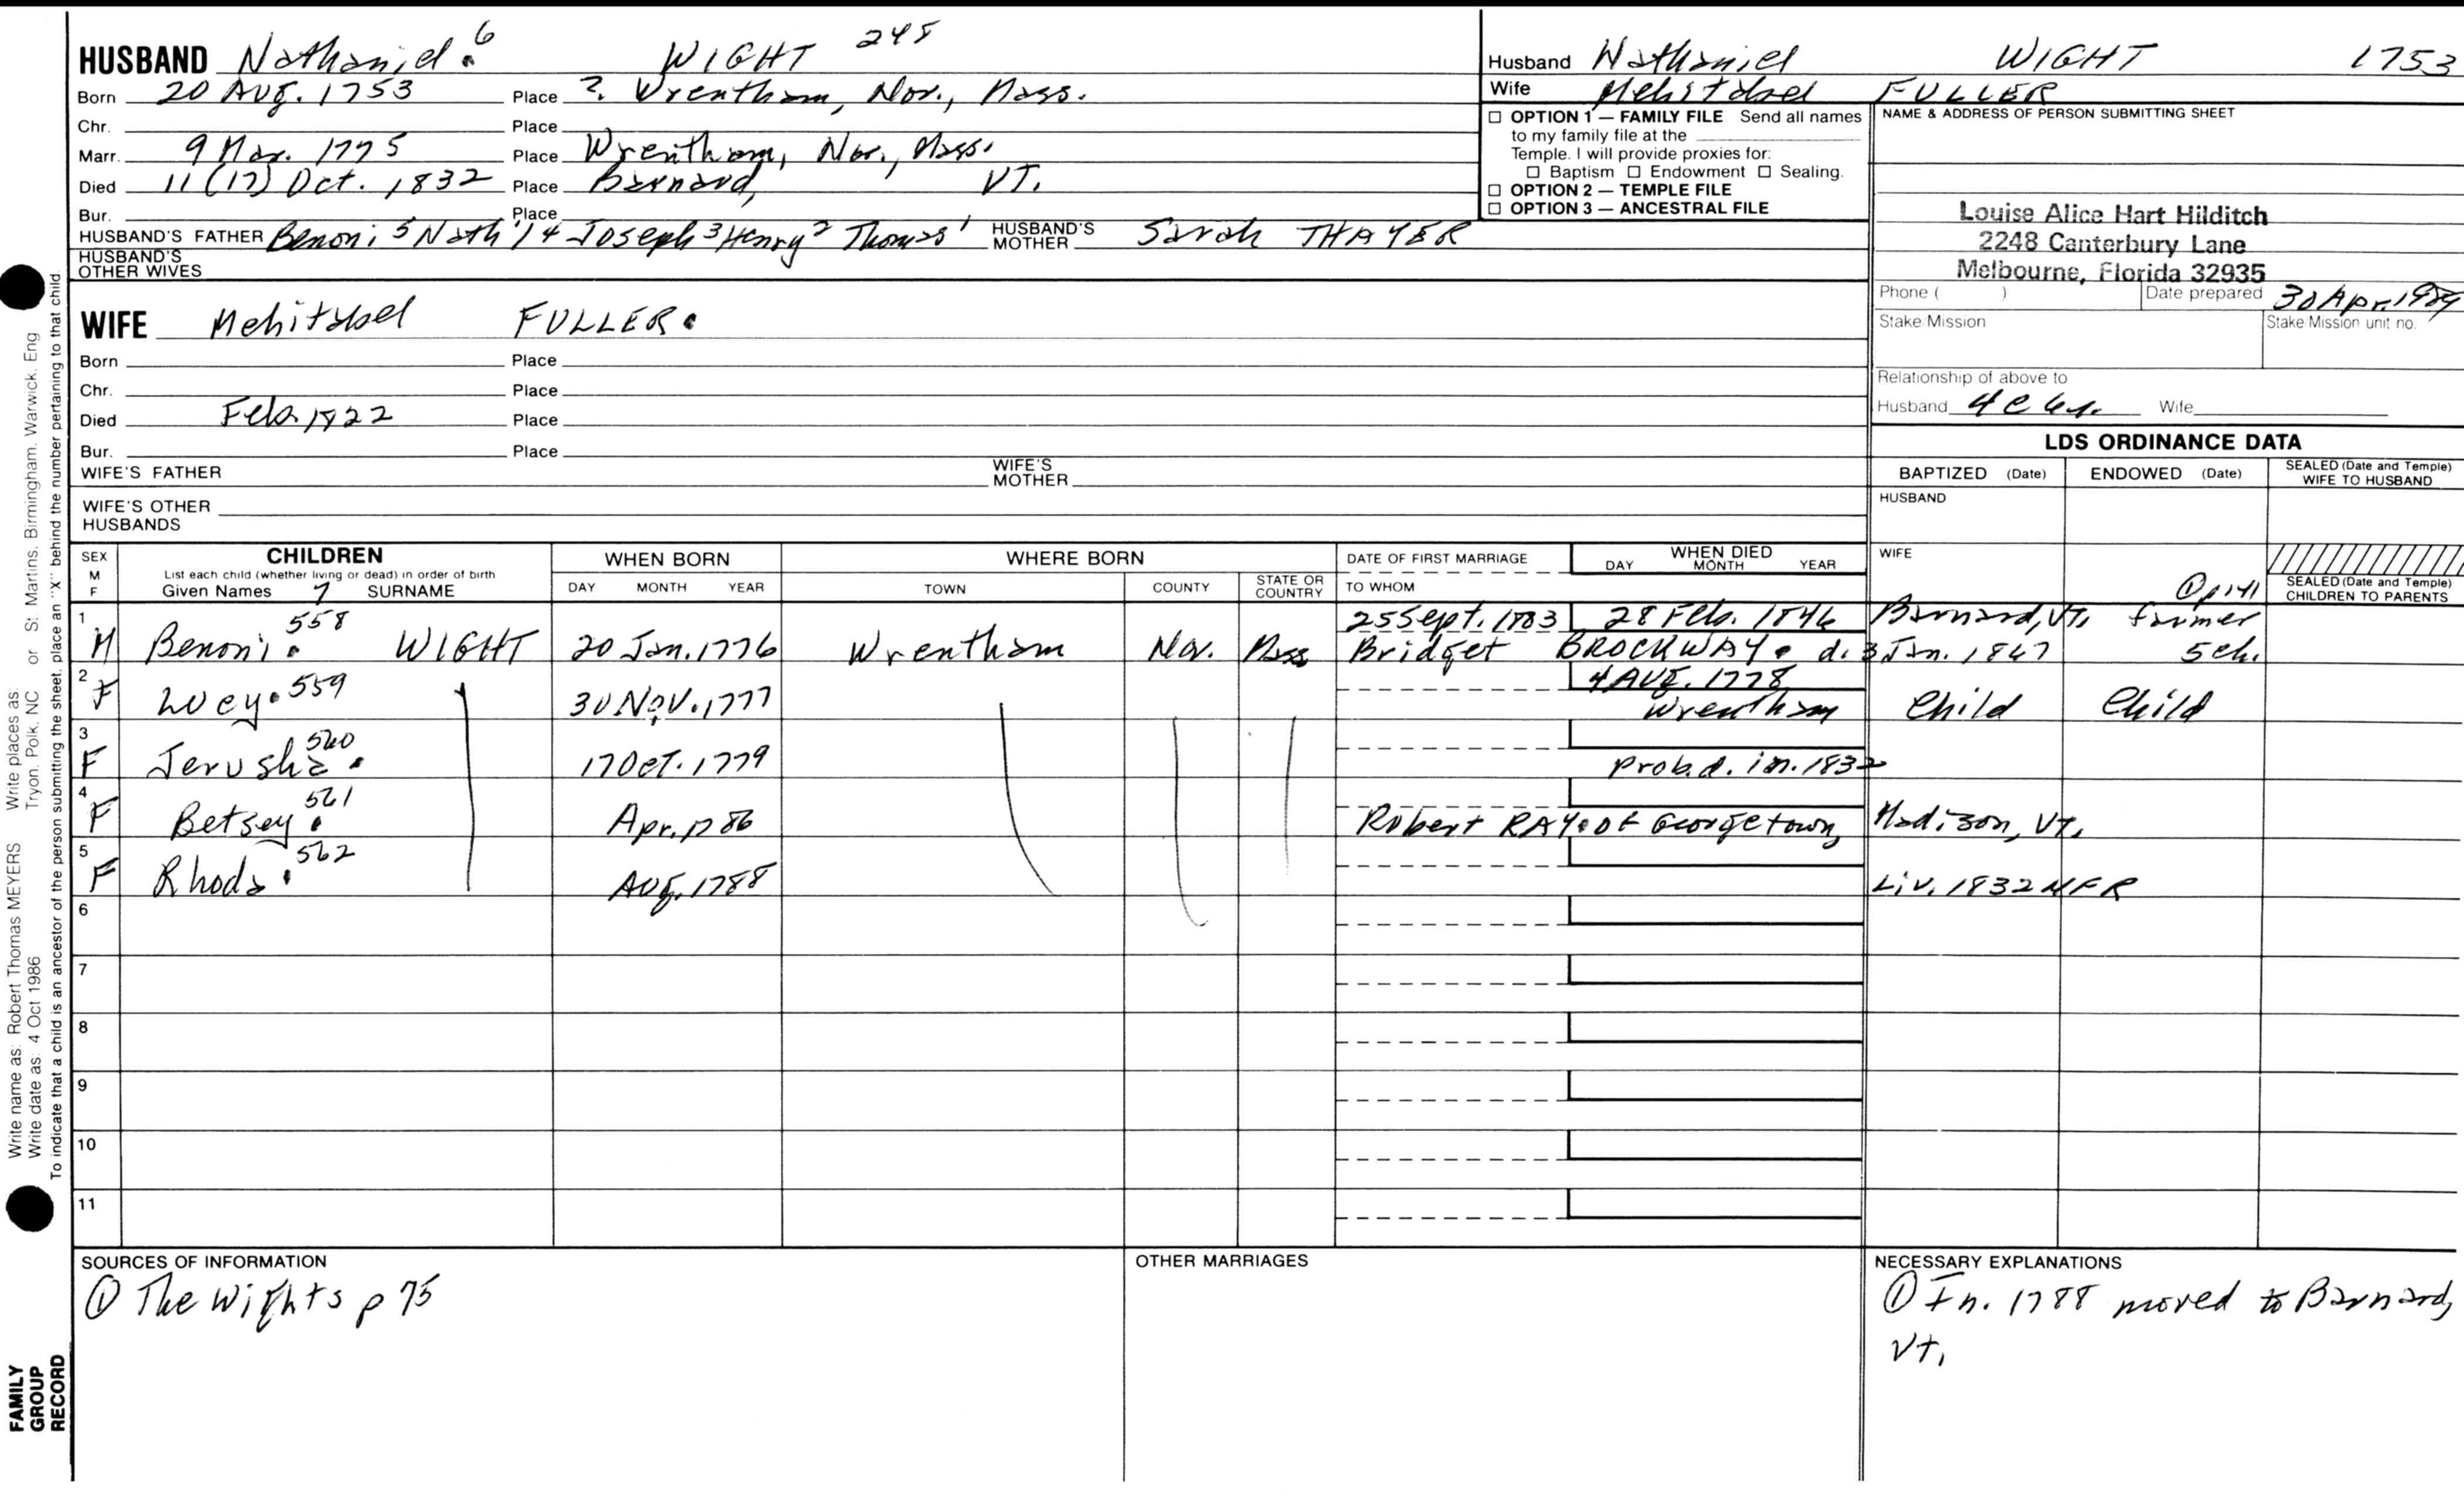 HUSBAND Nathaniel. 6 WIGHT 245
Born 20 Aug. 1753 Place ? Wrentham, Nor., Mass.
Chr. Place
Marr. 9 Mar. 1775 Place Wrentham, Nor., Mass.
Died 11 (17) Oct. 1832 Place Barnard, VT.
Bur. Place
HUSBAND'S FATHER Benoni 5 Nath'l 4 Joseph 3 Henry 2 Thomas 1 HUSBAND'S MOTHER Sarah THAYER
HUSBAND'S OTHER WIVES
Husband Nathaniel WIGHT 1753
Wife Mehitabel FULLER
☐ OPTION 1 — FAMILY FILE Send all names
to my family file at the
Temple. I will provide proxies for:
☐ Baptism ☐ Endowment ☐ Sealing.
☐ OPTION 2 — TEMPLE FILE
☐ OPTION 3 — ANCESTRAL FILE
NAME & ADDRESS OF PERSON SUBMITTING SHEET
Louise Alice Hart Hilditch
2248 Canterbury Lane
Melbourne, Florida 32935
Phone ( ) Date prepared 30 Apr. 1989
Stake/Mission Stake/Mission unit no.
Relationship of above to
Husband 4C Wife
WIFE Mehitabel FULLER.
Born Place
Chr. Place
Died Feb. 1822 Place
Bur. Place
WIFE'S FATHER WIFE'S MOTHER
WIFE'S OTHER HUSBANDS
LDS ORDINANCE DATA
BAPTIZED (Date) ENDOWED (Date) SEALED (Date and Temple) WIFE TO HUSBAND
HUSBAND
WIFE
① p 141
SEALED (Date and Temple) CHILDREN TO PARENTS
SEX M F
CHILDREN
List each child (whether living or dead) in order of birth
Given Names 7 SURNAME
WHEN BORN
DAY MONTH YEAR
WHERE BORN
TOWN COUNTY STATE OR COUNTRY
DATE OF FIRST MARRIAGE
TO WHOM
WHEN DIED
DAY MONTH YEAR
1 558 25 Sept. 1803 28 Feb. 1846 Barnard, Vt. farmer
M Benoni. WIGHT 20 Jan. 1776 Wrentham Nor. Mass Bridget BROCKWAY. d. 3 Jan. 1847 5 ch.
2 4 Aug. 1778
F Lucy. 559 30 Nov. 1777 Wrentham Child Child
3 560
F Jerusha. 17 Oct. 1779 prob. d. in. 1832
4 561
F Betsey. Apr. 1786 Robert RAY. of Georgetown, Madison, Vt.
5 562
F Rhoda. Aug. 1788 Liv. 1832 NFR
6
7
8
9
10
11
SOURCES OF INFORMATION
① The Wights p 75
OTHER MARRIAGES
NECESSARY EXPLANATIONS
① In. 1788 moved to Barnard,
Vt.
Write name as: Robert Thomas MEYERS Write places as: Tryon, Polk, NC or St. Martins, Birmingham, Warwick, Eng
Write date as: 4 Oct 1986
To indicate that a child is an ancestor of the person submitting the sheet, place an "X" behind the number pertaining to that child
FAMILY
GROUP
RECORD